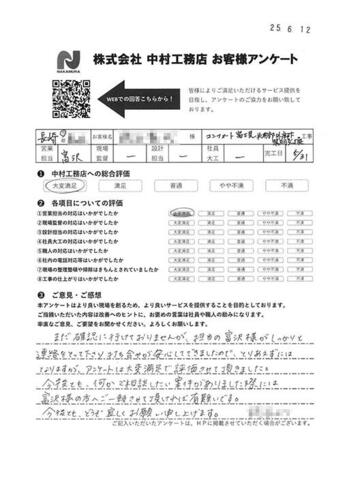 25 6 12
N
NAKAMURA
株式会社 中村工務店 お客様アンケート
WEBでの回答こちらから！
皆様によりご満足いただけるサービス提供を
目指し、アンケートのご協力をお願い致して
おります。
お客様名 様 工事
営業担当 富沢 現場監督 ー 設計担当 ー 社員大工 ー 完工日 5/31
❶ 中村工務店への総合評価
大変満足 満足 普通 やや不満 不満
❷ 各項目についての評価
①営業担当の対応はいかがでしたか 大変満足 満足 普通 やや不満 不満
②現場監督の対応はいかがでしたか 大変満足 満足 普通 やや不満 不満
③設計担当の対応はいかがでしたか 大変満足 満足 普通 やや不満 不満
④社員大工の対応はいかがでしたか 大変満足 満足 普通 やや不満 不満
⑤職人の対応はいかがでしたか 大変満足 満足 普通 やや不満 不満
⑥社内の電話対応等はいかがでしたか 大変満足 満足 普通 やや不満 不満
⑦現場の整理整頓や掃除はきちんとされていましたか 大変満足 満足 普通 やや不満 不満
⑧工事の仕上がりはいかがでしたか 大変満足 満足 普通 やや不満 不満
❸ ご意見・ご感想
本アンケートはより良い現場を創るため、より良いサービスを提供することを目的としております。
ご指摘いただいた内容は改善へのヒントに、お褒めの言葉は社員や職人の励みになります。
率直なご意見、ご要望をお聞かせください。よろしくお願いします。
まだ確認に行けておりませんが、担当の富沢様がしっかりと
連絡をとって下さり、打ち合せが安心してできましたので、とりあえずには
なりますが、アンケートは大変満足で評価させて頂きました。
今後とも、何かご相談したい案件がありました際には
富沢様の方へご一報させて頂ければ有難いです。
今後とも、どうぞ宜しくお願い申し上げます。
ご記入いただいたアンケートは、HPに掲載させていただく場合がございます。